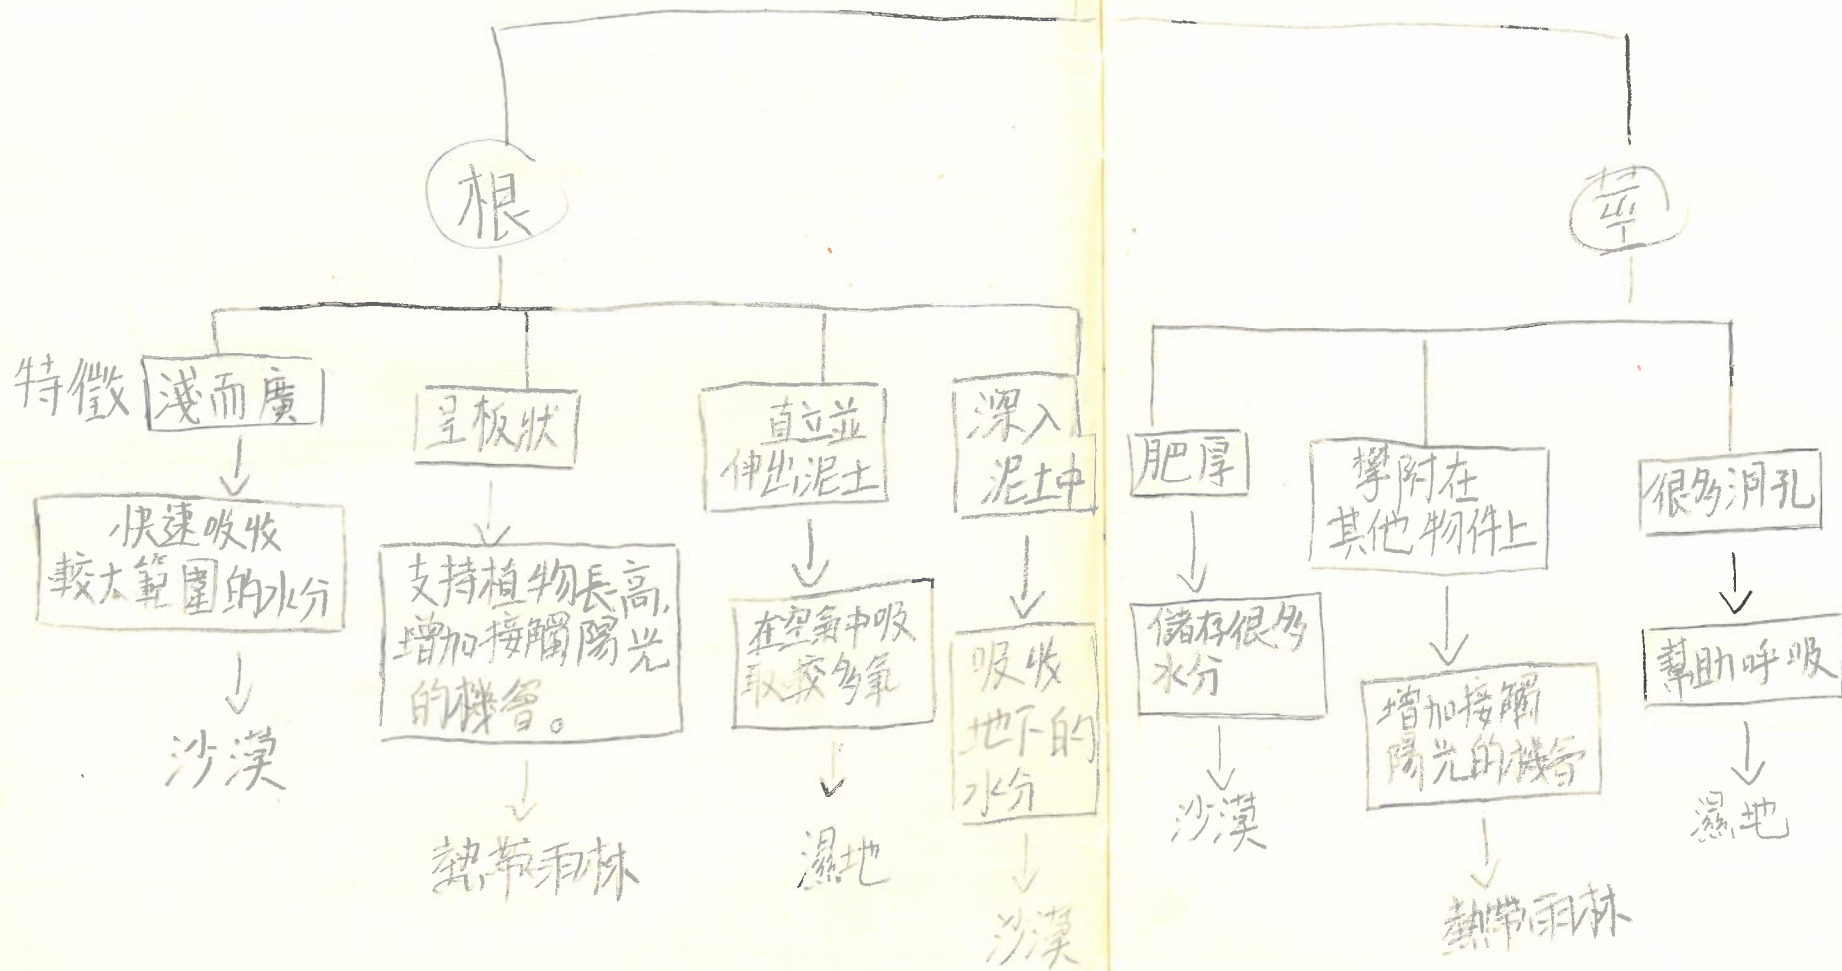 根
莖
特徵
淺而廣
快速吸收
較大範圍的水分
沙漠
呈板狀
支持植物長高,
增加接觸陽光
的機會。
熱帶雨林
直立並
伸出泥土
在空氣中吸
取較多氧
濕地
深入
泥土中
吸收
地下的
水分
沙漠
肥厚
儲存很多
水分
沙漠
攀附在
其他物件上
增加接觸
陽光的機會
熱帶雨林
很多洞孔
幫助呼吸
濕地